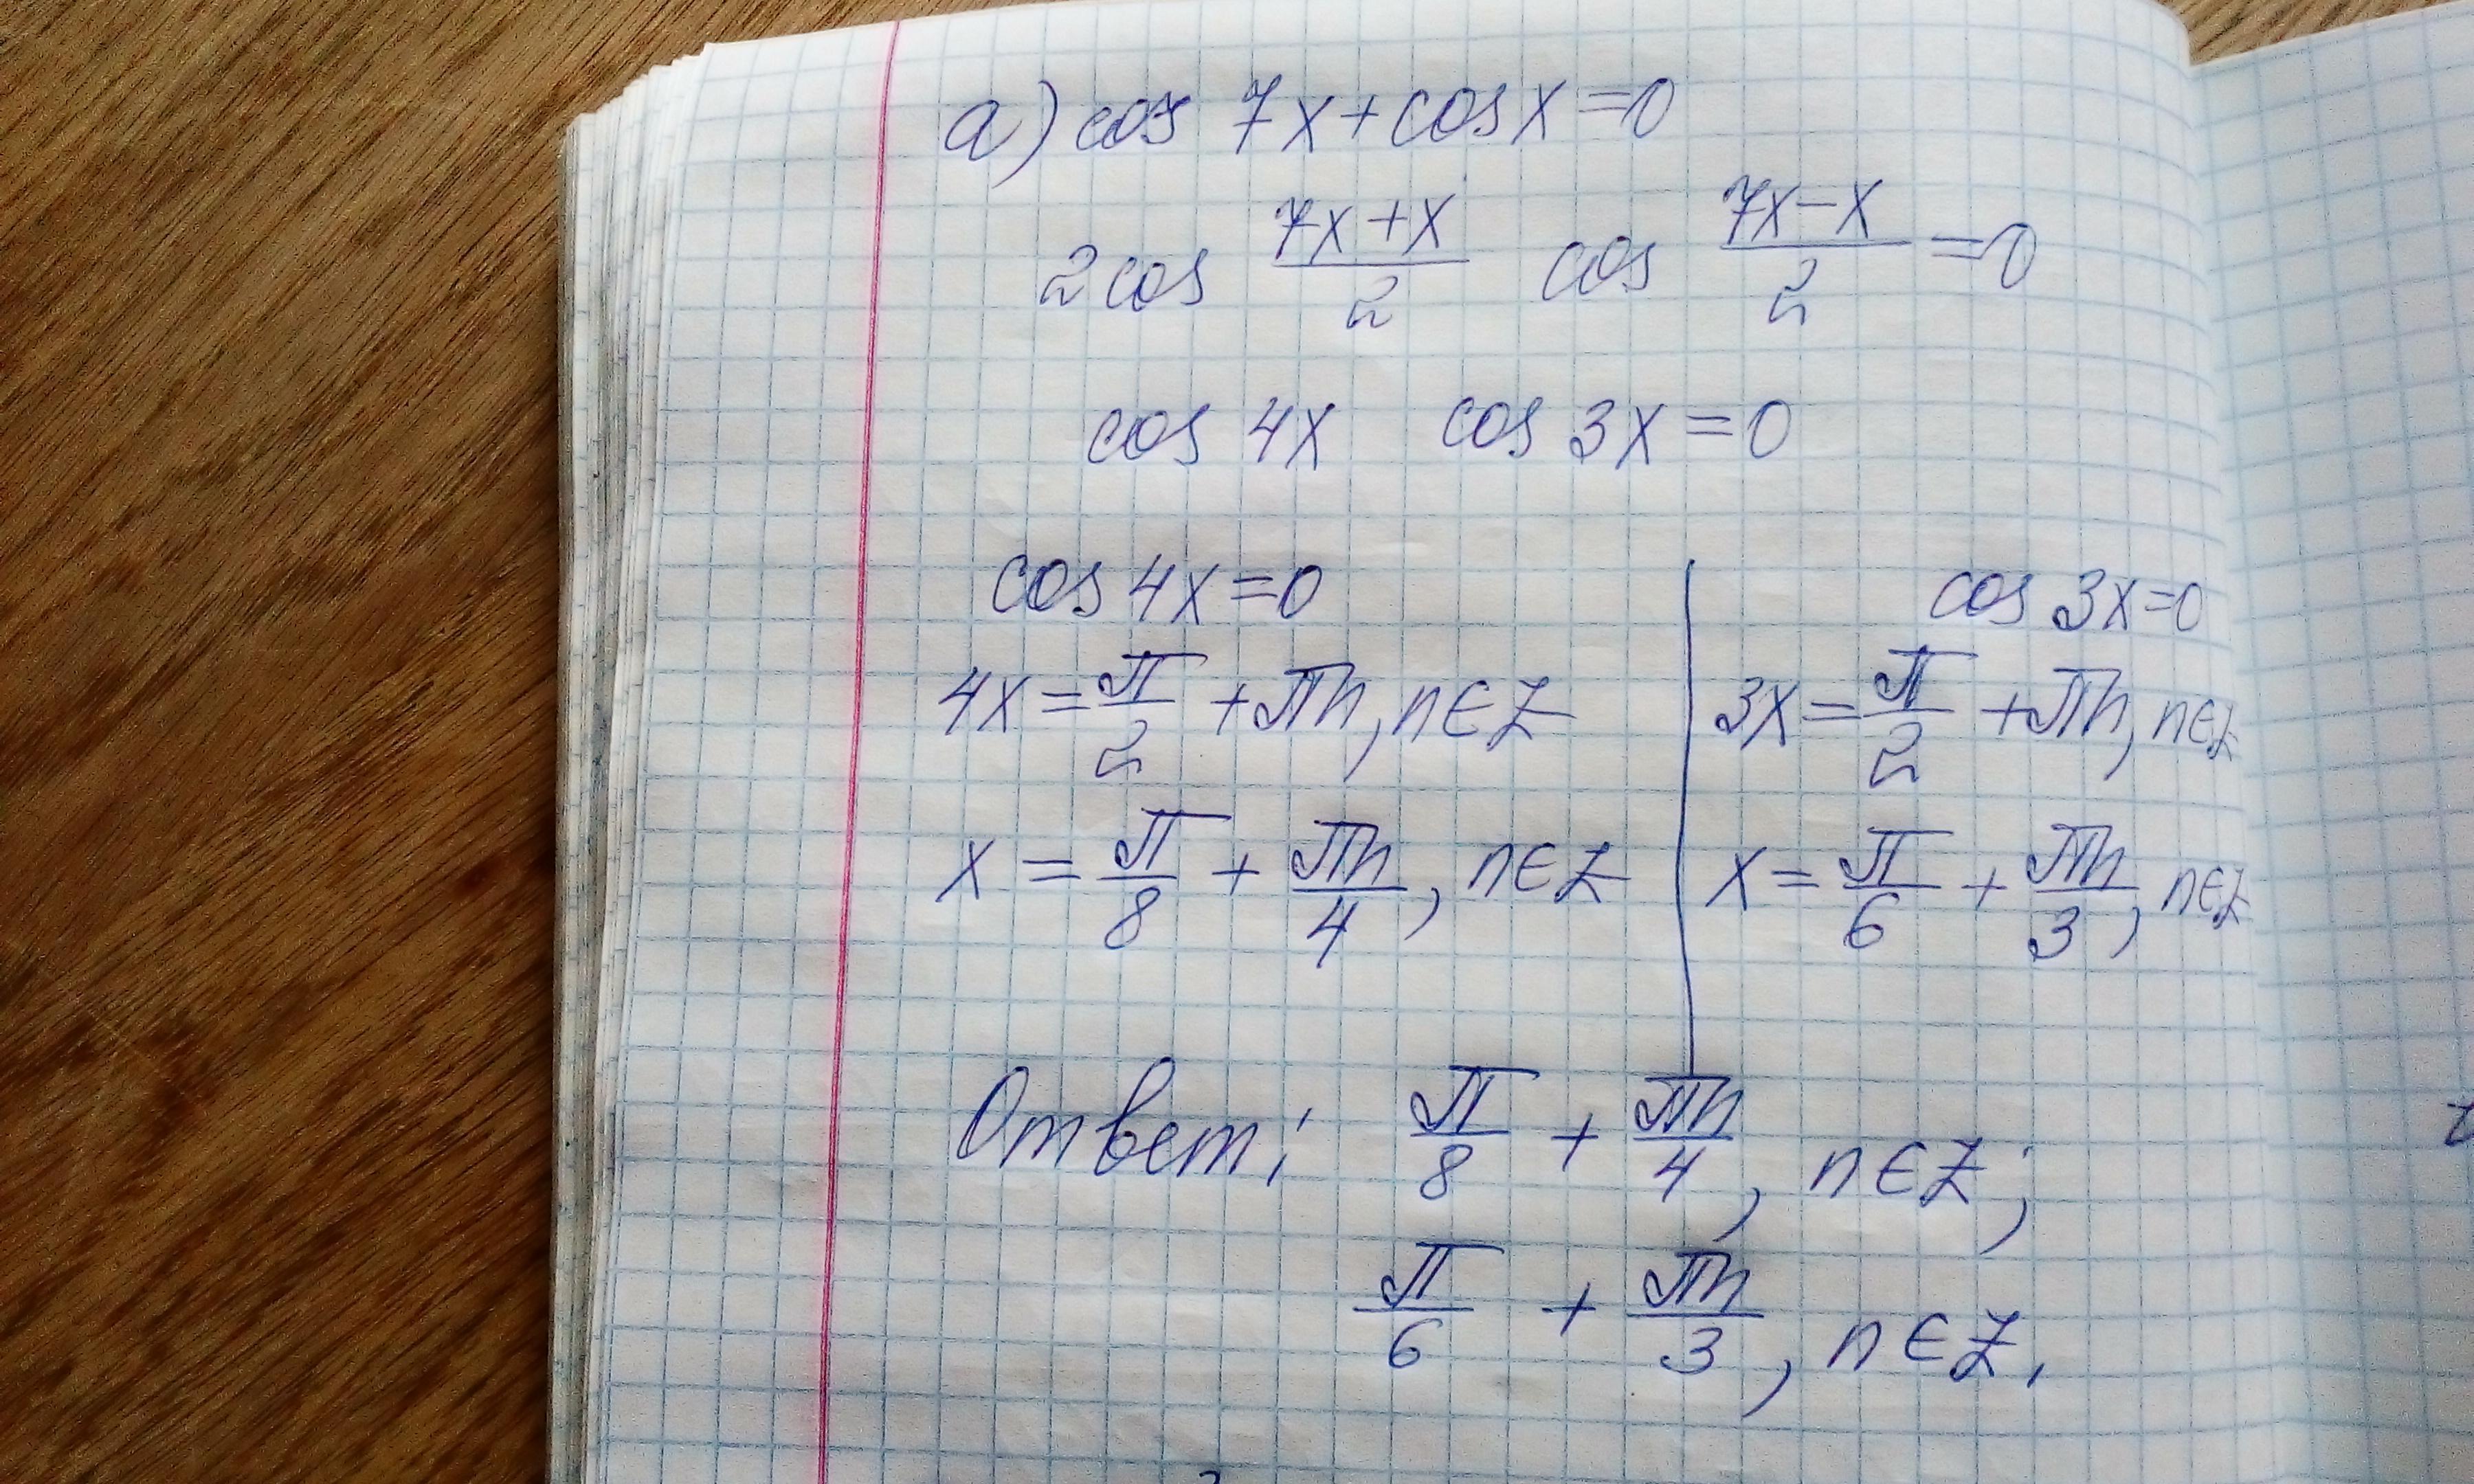 а) cos 7x + cos x = 0
2 cos (7x + x)/2 cos (7x − x)/2 = 0
cos 4x cos 3x = 0
cos 4x = 0 cos 3x = 0
4x = π/2 + πn, n ∈ Z 3x = π/2 + πn, n ∈ Z
x = π/8 + πn/4, n ∈ Z x = π/6 + πn/3, n ∈ Z
Ответ: π/8 + πn/4, n ∈ Z;
π/6 + πn/3, n ∈ Z.